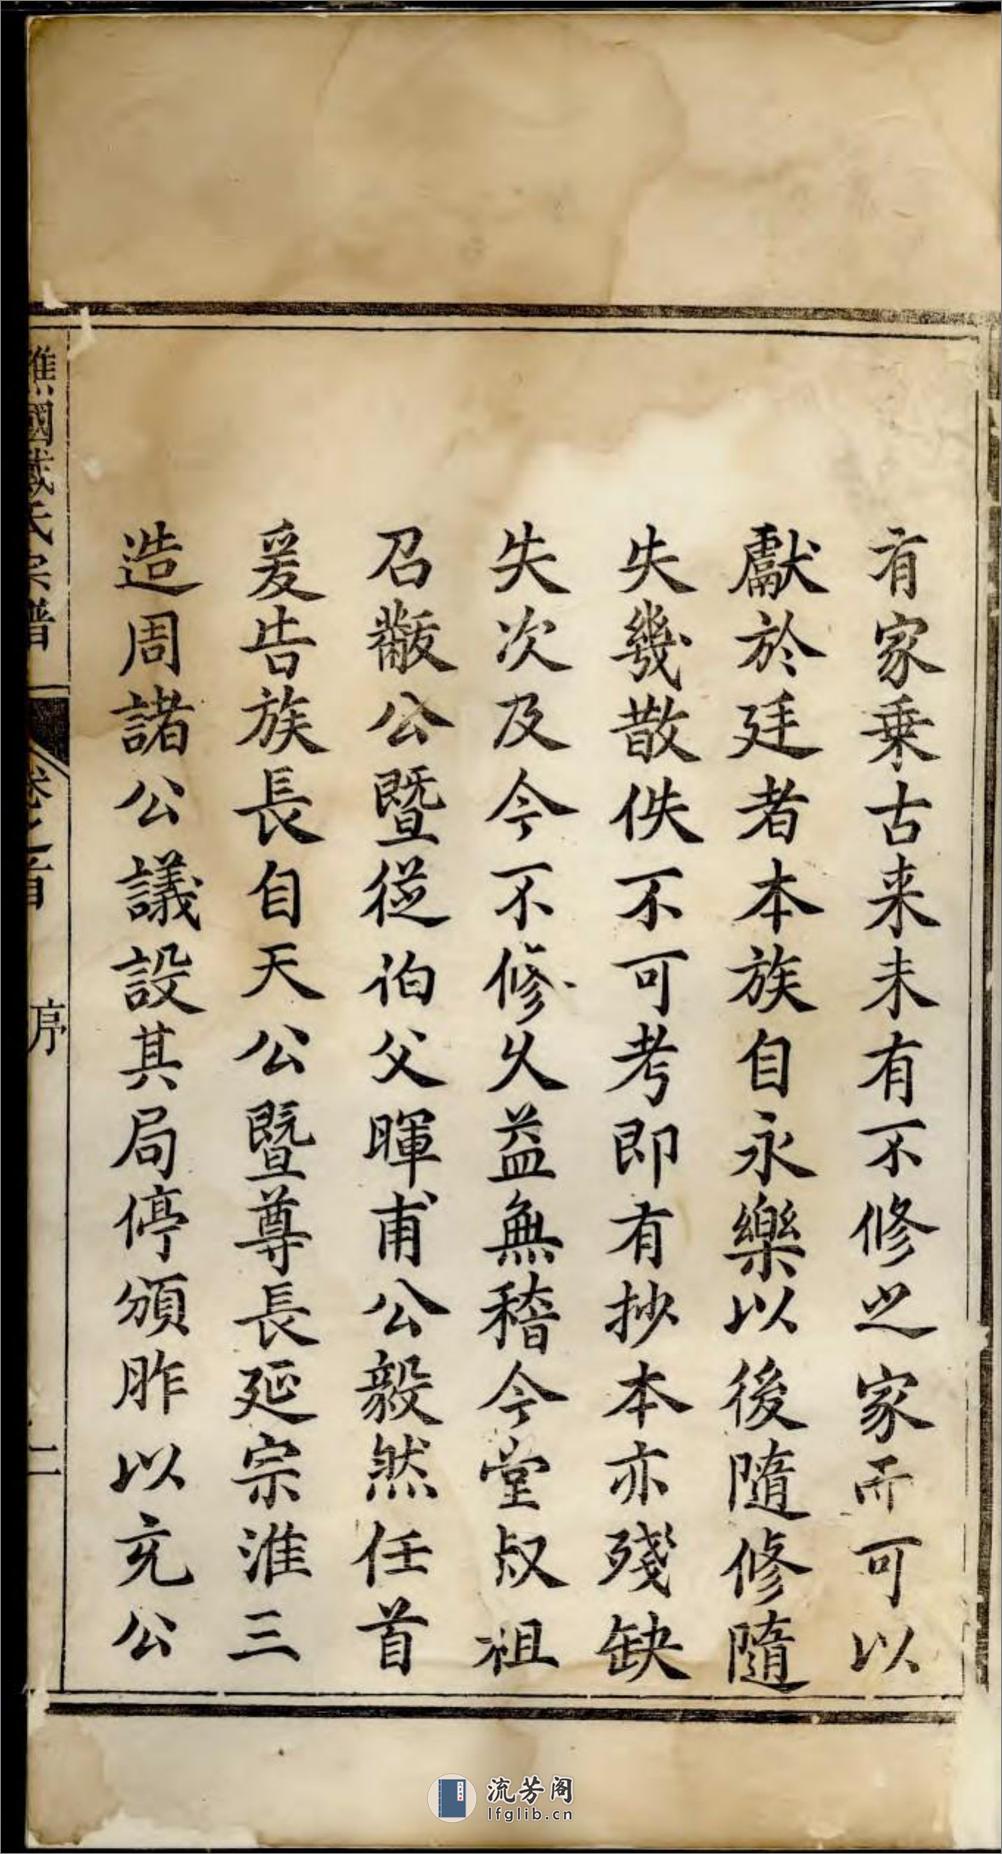 有家乗古来未有不修之家而可以
獻於廷者本族自永樂以後隨修隨
失幾散佚不可考即有抄本亦殘缺
失次及今不修久益無稽今堂叔祖
召黻公暨從伯父暉甫公毅然任首
爰告族長自天公暨尊長延宗淮三
造周諸公議設其局停頒胙以充公
譙國戴氏宗譜 卷之首 序 二
流芳阁
lfglib.cn